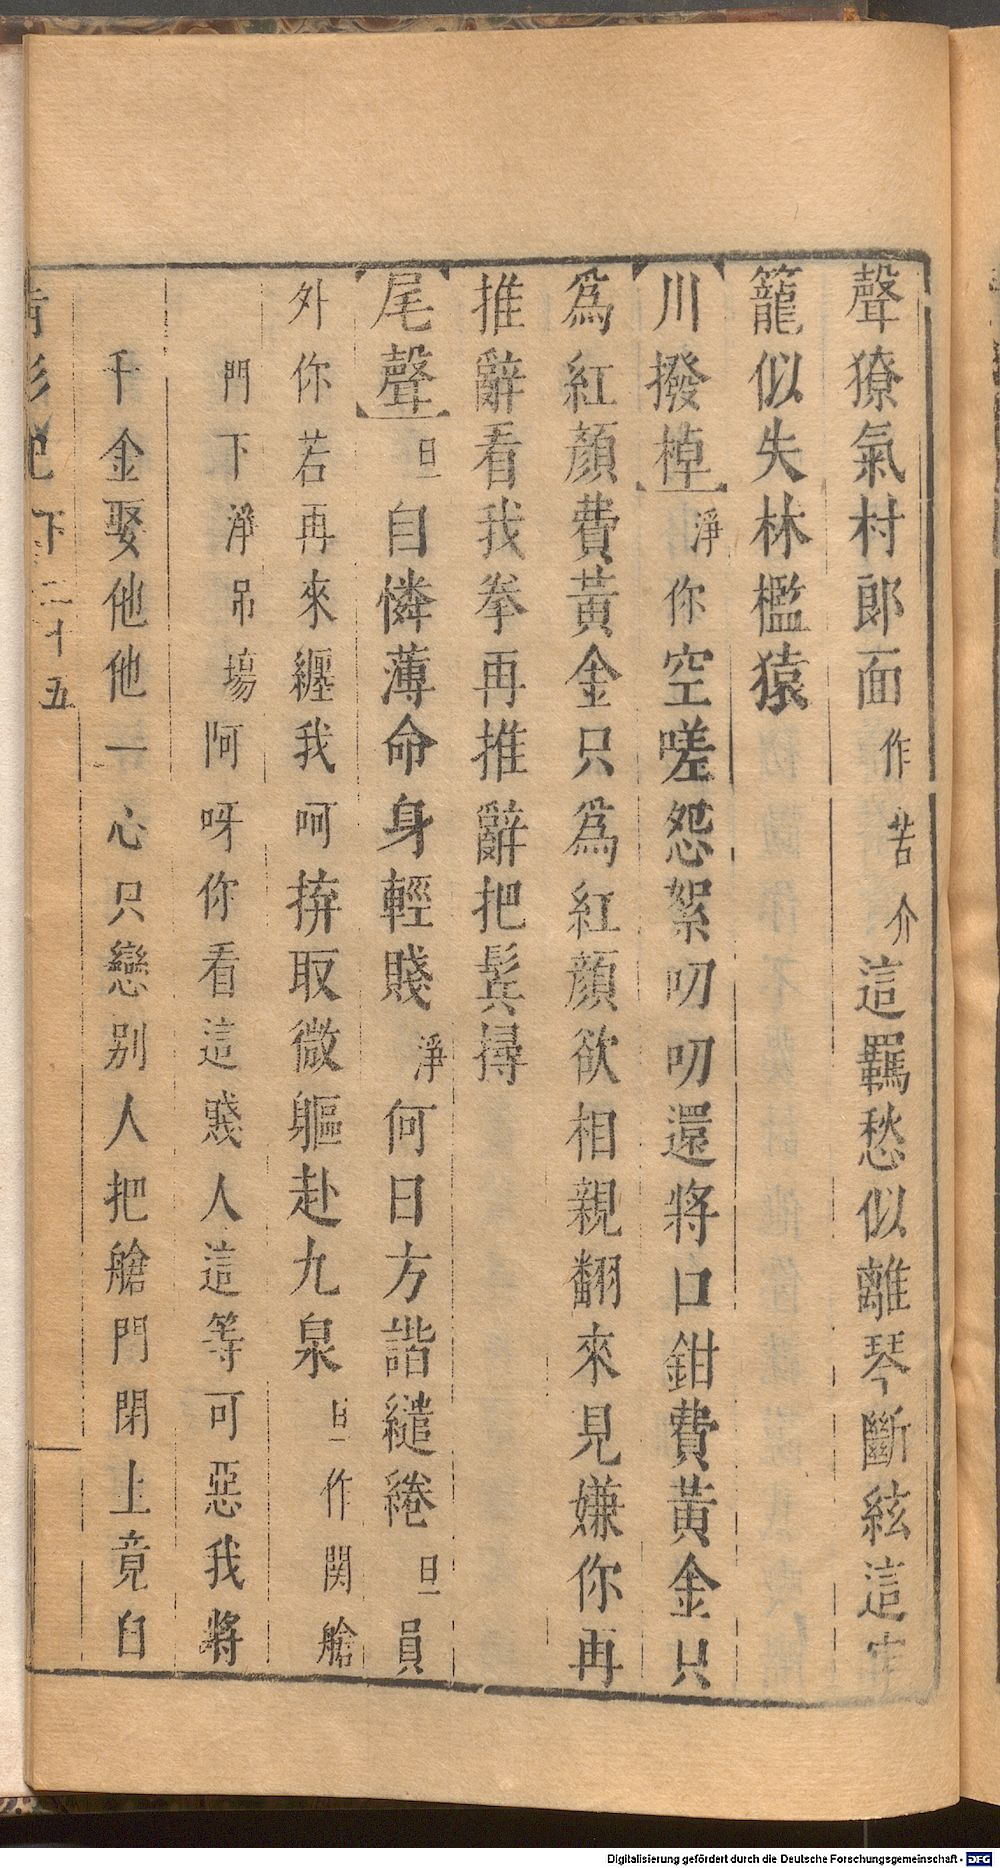 聲獠氣村郎面作苦介這羈愁似離琴斷絃這牢
籠似失林檻猿
川撥棹淨你空嗟怨絮叨叨還將口鉗費黃金只
爲紅顏費黃金只爲紅顏欲相親翻來見嫌你再
推辭看我拳再推辭把鬂撏
尾聲旦自憐薄命身輕賤淨何日方諧繾綣旦員
外你若再來纏我呵拚取微軀赴九泉旦作関艙
門下淨吊塲阿呀你看這賤人這等可惡我將
千金娶他他一心只戀別人把艙門閉上竟自
下二十五
Digitalisierung gefördert durch die Deutsche Forschungsgemeinschaft - DFG